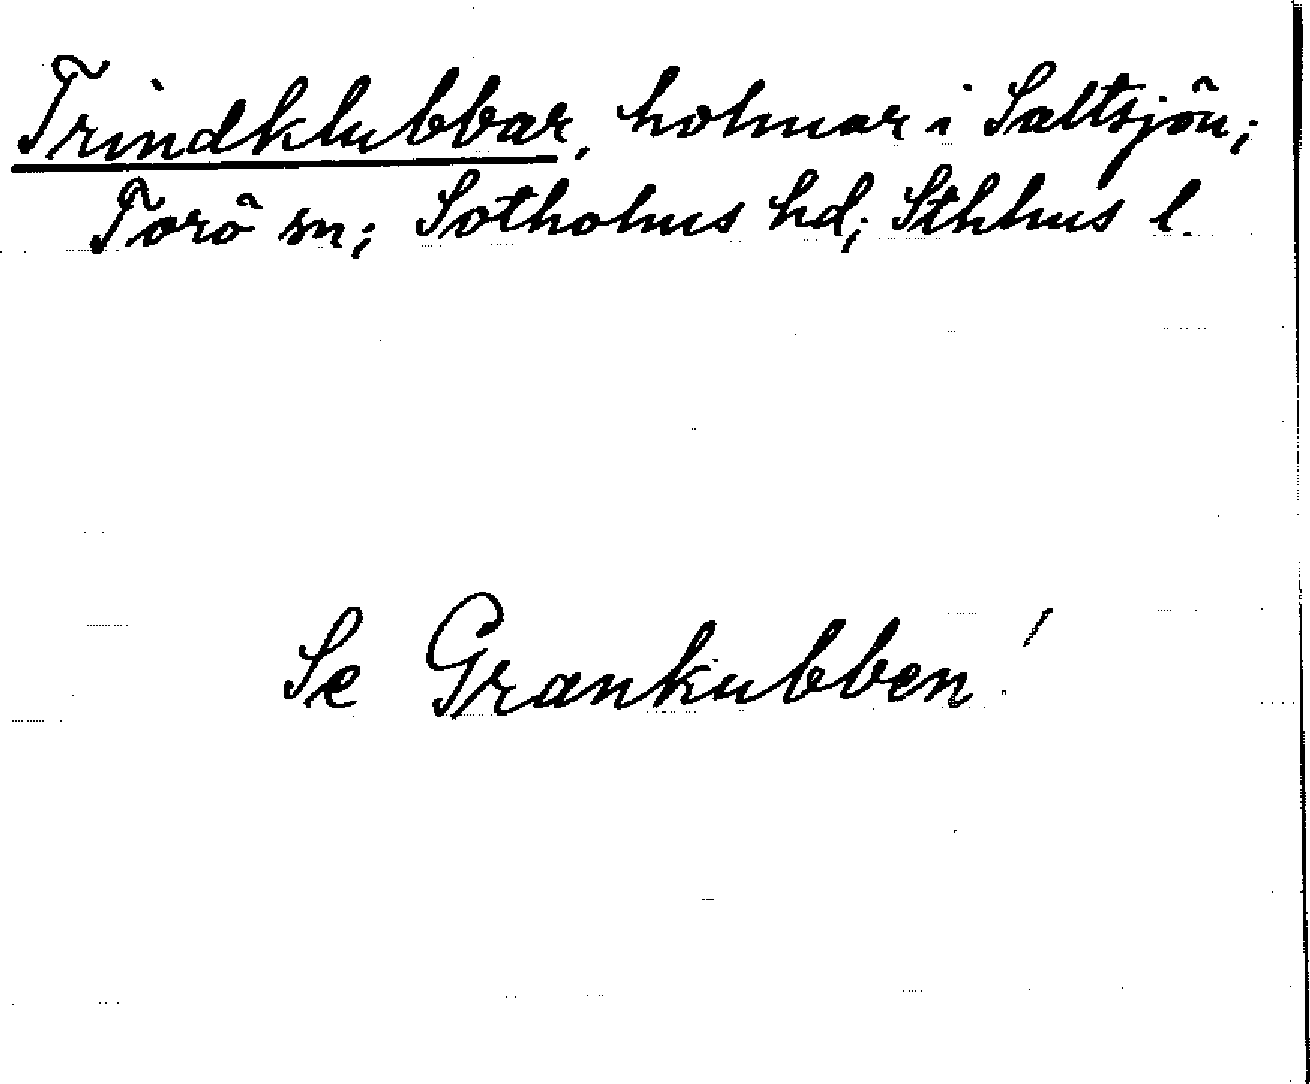 Trindklubbar, holmar i Saltsjön;
Torö sn; Sotholms hd; Sthlms l.
Se Grankubben!